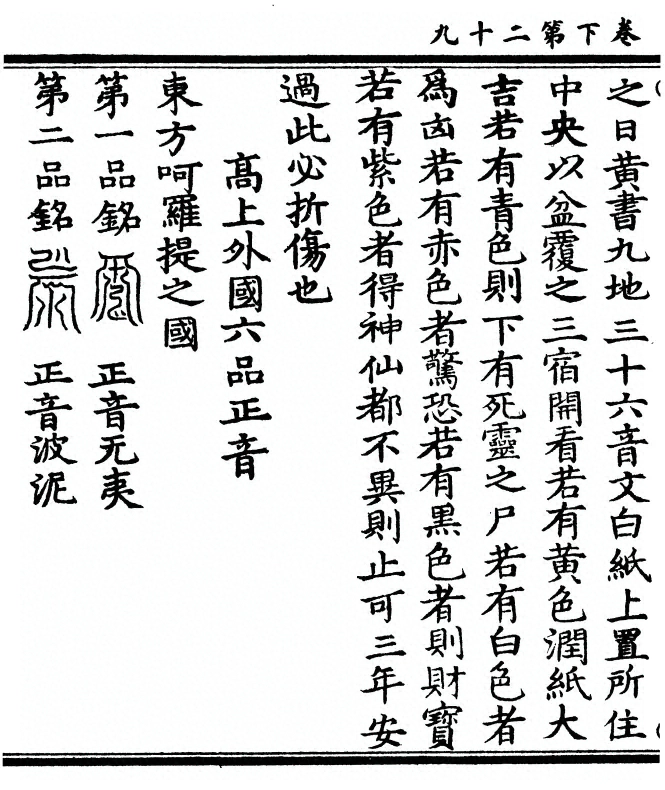 卷下第二十九
之日黄書九地三十六音文白紙上置所住
中央以盆覆之三宿開看若有黄色潤紙大
吉若有青色則下有死靈之尸若有白色者
爲凶若有赤色者驚恐若有黒色者則財寳
若有紫色者得神仙都不異則止可三年安
過此必折傷也
髙上外國六品正音
東方呵羅提之國
第一品銘 正音无夷
第二品銘 正音波泥